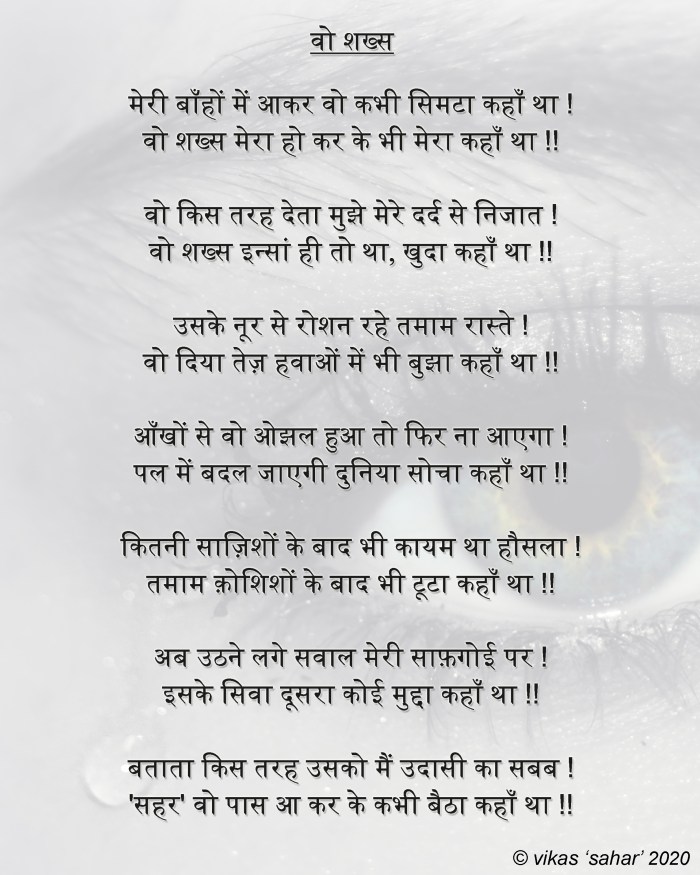 वो शख्स
मेरी बाँहों में आकर वो कभी सिमटा कहाँ था !
वो शख्स मेरा हो कर के भी मेरा कहाँ था !!
वो किस तरह देता मुझे मेरे दर्द से निजात !
वो शख्स इन्सां ही तो था, खुदा कहाँ था !!
उसके नूर से रोशन रहे तमाम रास्ते !
वो दिया तेज़ हवाओं में भी बुझा कहाँ था !!
आँखों से वो ओझल हुआ तो फिर ना आएगा !
पल में बदल जाएगी दुनिया सोचा कहाँ था !!
कितनी साज़िशों के बाद भी कायम था हौसला !
तमाम क़ोशिशों के बाद भी टूटा कहाँ था !!
अब उठने लगे सवाल मेरी साफ़गोई पर !
इसके सिवा दूसरा कोई मुद्दा कहाँ था !!
बताता किस तरह उसको मैं उदासी का सबब !
'सहर' वो पास आ कर के कभी बैठा कहाँ था !!
© vikas ‘sahar’ 2020